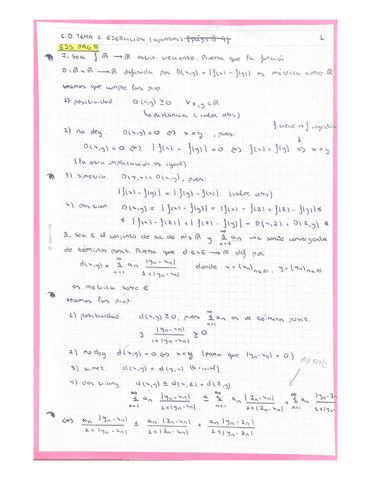 C.D. TEMA 1 EJERCICIOS (apuntes) (pág 3-4) 1
EJS PÁG 8
2. Sea f: ℝ → ℝ estrict. creciente. Prueba que la función
D: ℝ × ℝ → ℝ definida por D(x,y) = |f(x) - f(y)| es métrica sobre ℝ
veamos que cumple las prop.
1) positividad. D(x,y) ≥ 0 ∀x,y ∈ ℝ
↳ distancia (valor abs)
2) no deg. D(x,y) = 0 ⇔ x = y, pues:
f crece ⇒ f inyectiva
D(x,y) = 0 ⇔ |f(x) - f(y)| = 0 ⇔ f(x) = f(y) ⇒ x = y
(la otra implicación es igual)
3) simetría. D(y,x) = D(x,y), pues:
|f(x) - f(y)| = |f(y) - f(x)| (valor abs)
4) des. trian. D(x,y) = |f(x) - f(y)| = |f(x) - f(z) + f(z) - f(y)| ≤
≤ |f(x) - f(z)| + |f(z) - f(y)| = D(x,z) + D(z,y)
3. Sea E el conjunto de suc de nºs ℝ y ∞ Σ n=1 an una serie convergente
de términos posit. Prueba que d: E×E → ℝ def por
d(x,y) = ∞ Σ n=1 an |yn - xn| / 1 + |yn - xn| donde x = (xn)n∈ℕ, y = (yn)n∈ℕ
es métrica sobre E
veamos las prop.
1) positividad d(x,y) ≥ 0, pues ∞ Σ n=1 an es de término posit.
y |yn - xn| / 1 + |yn - xn| ≥ 0
2) no deg. d(x,y) = 0 ⇔ x = y (para que |yn - xn| = 0)
3) simet. d(x,y) = d(y,x) (trivial)
4) des. triang. d(x,y) ≤ d(x,z) + d(z,y)
∞ Σ n=1 an |yn - xn| / 1 + |yn - xn| ≤ ∞ Σ n=1 an |zn - xn| / 1 + |zn - xn| + ∞ Σ n=1 an |yn - zn| / 1 + |yn
⇔ an |yn - xn| / 1 + |yn - xn| ≤ an |zn - xn| / 1 + |zn - xn| + an |yn - zn| / 1 + |yn - zn|